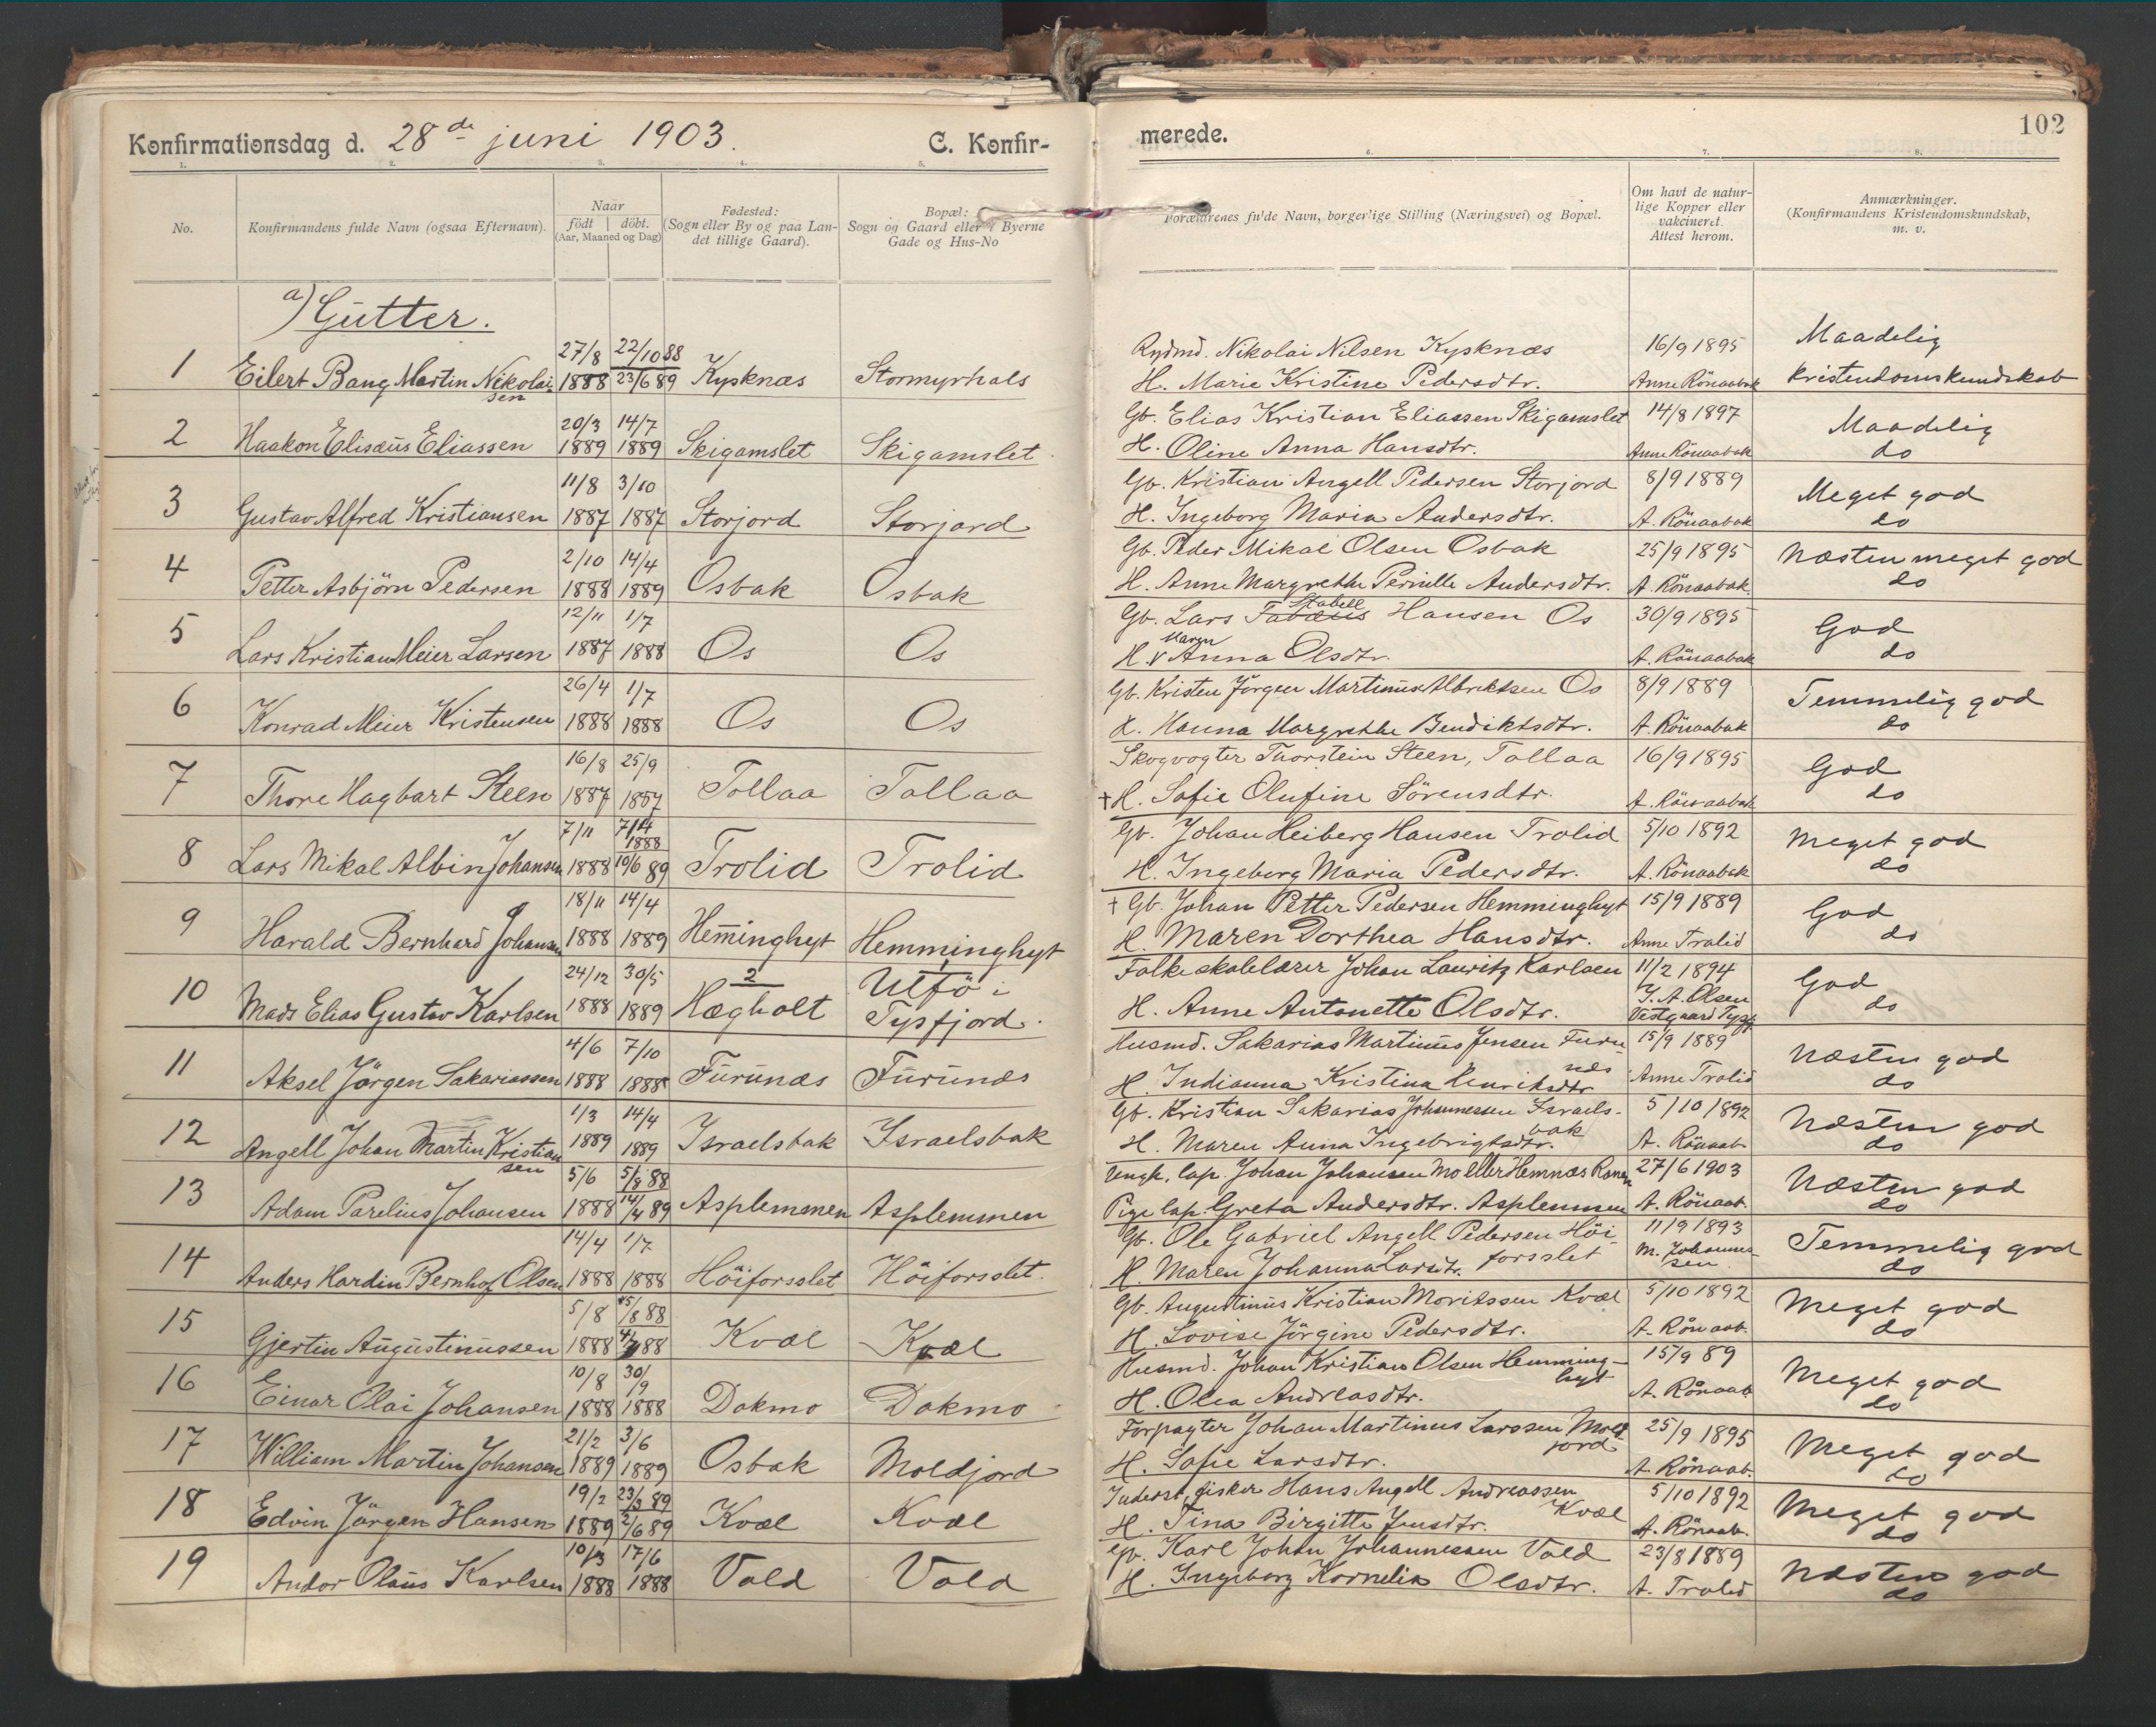 Konfirmationsdag d. 28de juni 1903. C. Konfir-
merede. 102
1. 2. 3. 4. 5. 6. 7. 8.
No.
Konfirmandens fulde Navn (ogsaa Efternavn).
Naar
födt | döbt.
(Aar, Maaned og Dag)
Fødested:
(Sogn eller By og paa Lan-
det tillige Gaard).
Bopæl:
Sogn og Gaard eller i Byerne
Gade og Hus-No
Forældrenes fulde Navn, borgerlige Stilling (Næringsvei) og Bopæl.
Om havt de natur-
lige Kopper eller
vakcineret.
Attest herom.
Anmærkninger.
(Konfirmandens Kristendomskundskab,
m. v.
a) Gutter.
1 Eilert Bang Martin Nikolai-
sen
27/8 1888
22/10 88
23/6 89
Kysknæs Stormyrhals
Rydmd. Nikolai Nilsen Kysknæs
H. Marie Kristine Pedersdtr.
16/9 1895
Anne Rönaabak
Maadelig
kristendomskundskab
2 Haakon Elisæus Eliassen
20/3 1889
14/7 1889
Skigamslet Skigamslet
Gb. Elias Kristian Eliassen Skigamslet
H. Oline Anna Hansdtr.
14/8 1897
Anne Rönaabak
Maadelig
do
3 Gustav Alfred Kristiansen
11/8 1887
3/10 1887
Storjord Storjord
Gb. Kristian Angell Pedersen Storjord
H. Ingeborg Maria Andersdtr.
8/9 1889
A. Rönaabak
Meget god
do
4 Petter Asbjörn Pedersen
2/10 1888
14/4 1889
Osbak Osbak
Gb. Peder Mikal Olsen Osbak
H. Anne Margrethe Pernille Andersdtr.
25/9 1895
A. Rönaabak
Næsten meget god
do
5 Lars Kristian Meier Larsen
12/11 1887
1/7 1888
Os Os
Stabell
Gb. Lars Fabæus Hansen Os
Maren
H. v Anna Olsdtr.
30/9 1895
A. Rönaabak
God
do
6 Konrad Meier Kristensen
26/4 1888
1/7 1888
Os Os
Gb. Kristen Jörgen Martinus Albrektsen Os
H. Hanna Margrethe Bendiktsdtr.
8/9 1889
A. Rönaabak
Temmelig god
do
7 Thore Hagbart Steen
16/8 1887
25/9 1887
Tollaa Tollaa
Skogvogter Thorstein Steen, Tollaa
† H. Sofie Olufine Sörensdtr.
16/9 1895
A. Rönaabak
God
do
8 Lars Mikal Albin Johansen
7/11 1888
1888
10/6 89
Trolid Trolid
Gb. Johan Heiberg Hansen Trolid
H. Ingeborg Maria Pedersdtr.
5/10 1892
A. Rönaabak
Meget god
do
9 Harald Bernhard Johansen
18/11 1888
14/4 1889
Hemminghyt Hemminghyt
† Gb. Johan Petter Pedersen Hemminghyt
H. Maren Dorthea Hansdtr.
15/9 1889
Anne Trolid
God
do
10 Mads Elias Gustav Karlsen
24/12 1888
30/5 1889
2
Hægholt
Ulfö i
Tysfjord.
Folkeskolelærer Johan Lauritz Karlsen
H. Anne Antonette Olsdtr.
11/2 1894
J. A. Olsen
Vestgaard Tysf.
God
do
11 Aksel Jörgen Sakariassen
4/6 1888
7/10 1888
Furunæs Furunæs
Husmd. Sakarias Martinus Jensen Furu-
næs
H. Indianna Kristina Henriksdtr
15/9 1889
Anne Trolid
Næsten god
do
12 Angell Johan Martin Kristian
sen
1/3 1889
14/4 1889
Israelsbak Israelsbak
Gb. Kristian Sakarias Johannessen Israels-
bak
H. Maren Anna Ingebrigtsdtr.
5/10 1892
A. Rönaab.
Næsten god
do
13 Adam Parelius Johansen
5/6 1888
5/8 88
14/4 89
Asplemmen Asplemmen
Ungk. lap. Johan Johansen Mo eller Hemnæs Ranen
Pige lap. Greta Andersdtr. Asplemmen
27/6 1903
A. Rönaab.
Næsten god
do
14 Anders Hardin Bernhof Olsen
14/4 1888
1/7 1888
Höiforsslet Höiforsslet.
Gb. Ole Gabriel Angell Pedersen Höi-
forsslet
H. Maren Johanna Larsdtr.
11/9 1893
M. Johannes-
sen
Temmelig god
do
15 Gjertin Augustinussen
5/8 1888
88
88
Kvæl Kvæl
Gb. Augustinus Kristian Moritssen Kvæl
H. Lovise Jörgine Pedersdtr.
5/10 1892
A. Rönaab.
Meget god
do
16 Einar Olai Johansen
10/8 1888
30/9 1888
Dokmo Dokmo
Husmd. Johan Kristian Olsen Hemming-
hyt
H. Olea Andreasdtr.
15/9 89
A. Rönaab
Meget god
do
17 William Martin Johansen
21/2 1889
3/6 1889
Osbak Moldjord
Forpagter Johan Martinus Larssen Mold
jord
H. Sofie Larsdtr.
25/9 1895
A. Rönaab.
Meget god
do
18 Edvin Jörgen Hansen
19/2 1889
23/3 89
2/6 89
Kvæl Kvæl
Inderst, fisker Hans Angell Andreassen
Kvæl
H. Tina Birgitte Jensdtr.
5/10 1892
A. Rönaab.
Meget god
do
19 Andor Olaus Karlsen
10/3 1888
17/6 1888
Vold Vold
Gb. Karl Johan Johannessen Vold
H. Ingeborg Kornelia Olsdtr.
23/8 1889
A. Trolid
Næsten god
do